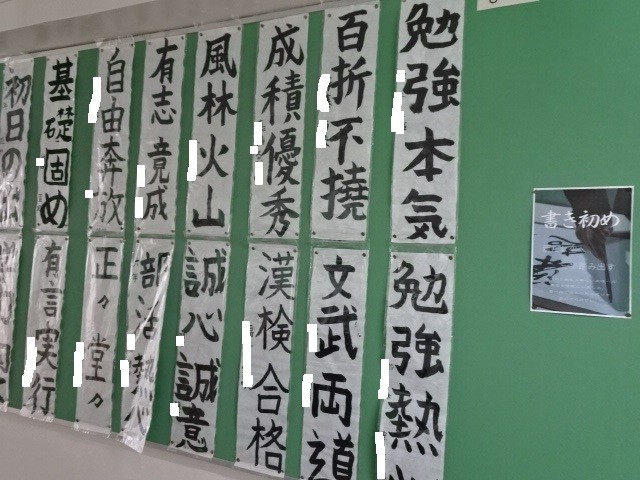 勉強本気
百折不撓
成積優秀
風林火山
有志竟成
自由奔放
基礎固め
初日の
勉強熱
文武両道
漢検合格
誠心誠意
部活熱心
正々堂々
有言実行
書き初め